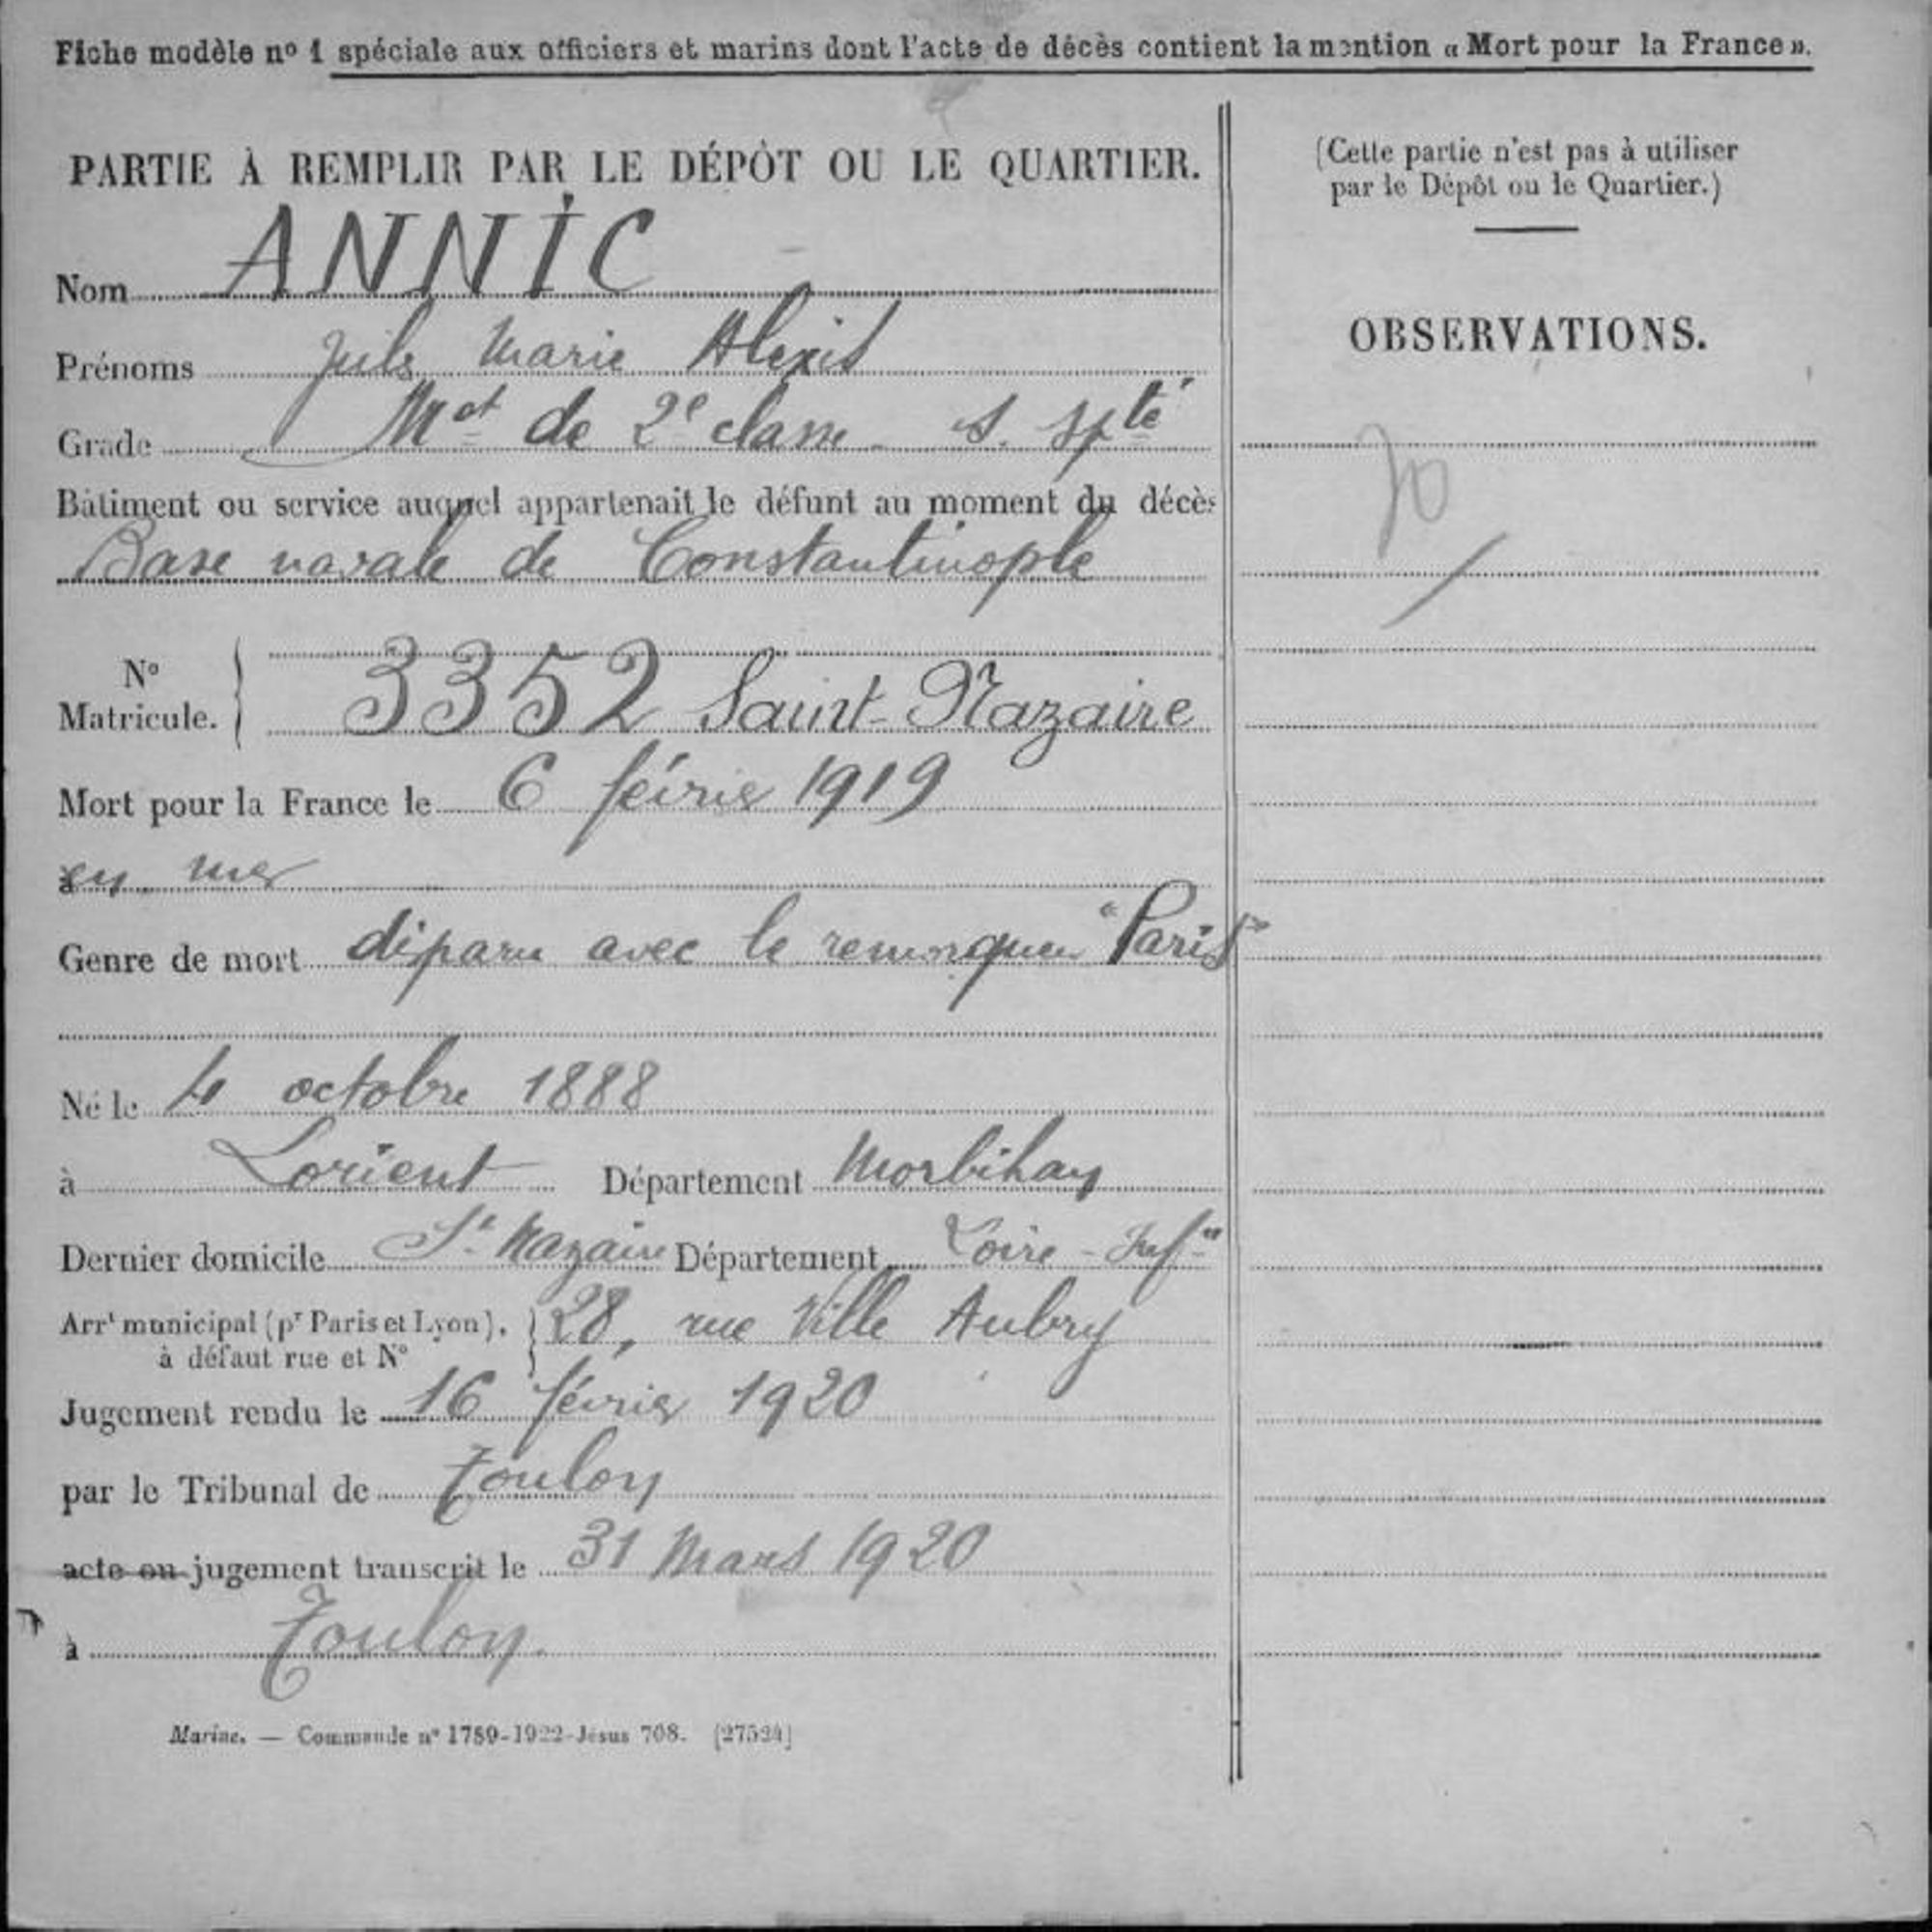 Fiche modèle nº 1 spéciale aux officiers et marins dont l'acte de décès contient la mention « Mort pour la France ».
PARTIE À REMPLIR PAR LE DÉPÔT OU LE QUARTIER.
Nom ANNIC
Prénoms Jules Marie Alexis
Grade Mot de 2e classe S. Spté
Bâtiment ou service auquel appartenait le défunt au moment du décès
Base navale de Constantinople
Nº Matricule. 3352 Saint-Nazaire
Mort pour la France le 6 février 1919
en mer
Genre de mort disparu avec le remorqueur "Paris"
Né le 4 octobre 1888
à Lorient Département Morbihan
Dernier domicile St Nazaire Département Loire-Infre
Arrt municipal (pr Paris et Lyon), à défaut rue et Nº 28, rue Ville Aubry
Jugement rendu le 16 février 1920
par le Tribunal de Toulon
acte ou jugement transcrit le 31 Mars 1920
à Toulon.
Marine. — Commande nº 1789-1922-Jésus 708. [27524]
(Cette partie n'est pas à utiliser
par le Dépôt ou le Quartier.)
OBSERVATIONS.